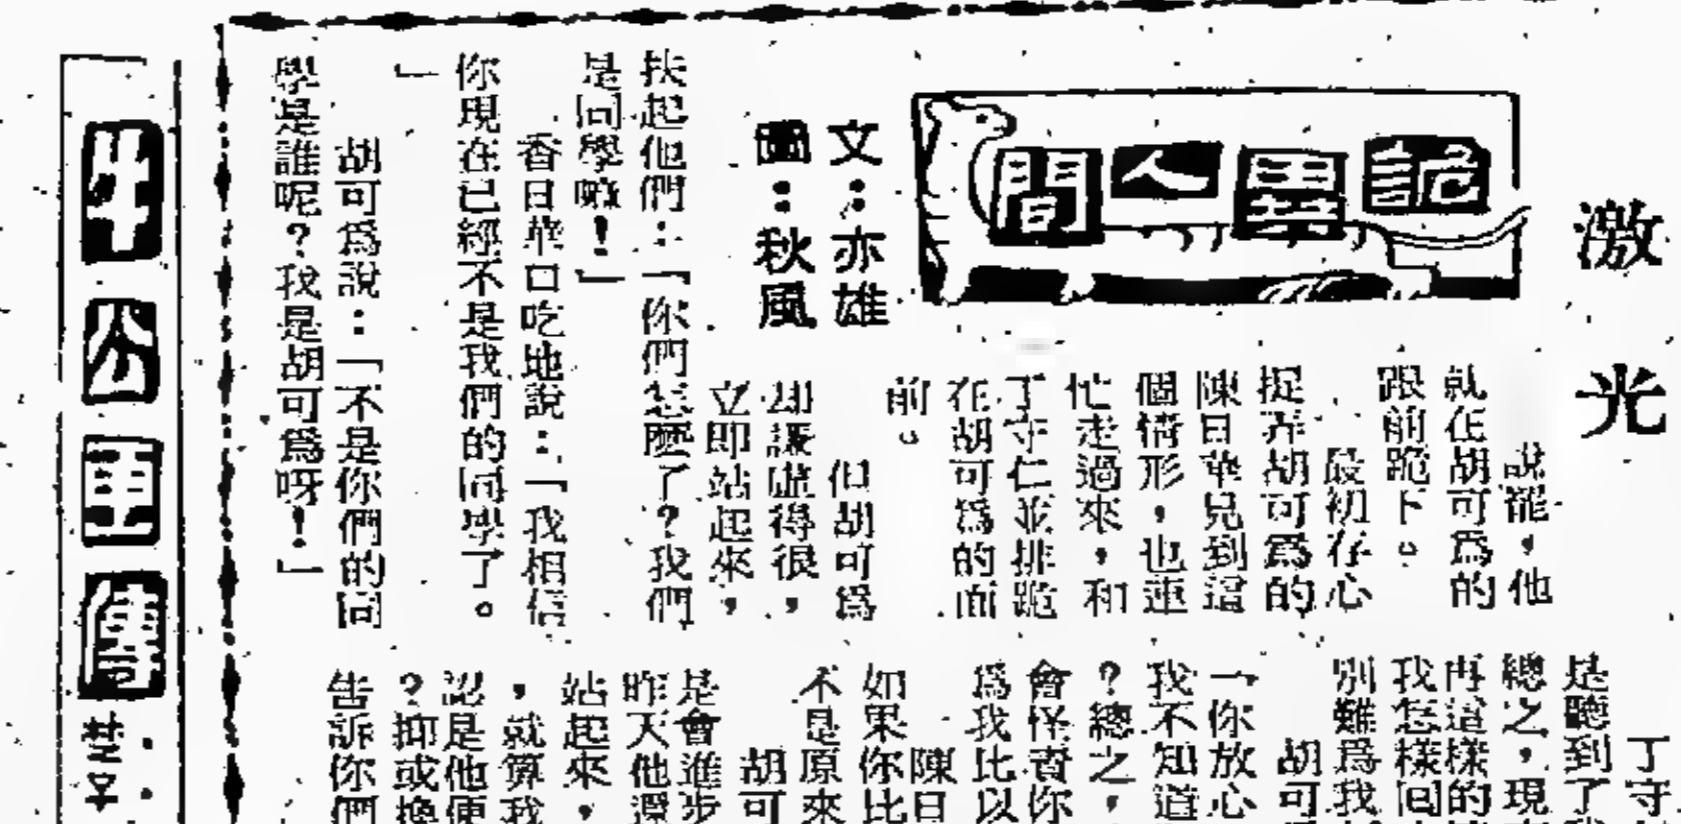 激光
詭異人間
文：亦雄
圖：秋風
說罷，他
就在胡可爲的
跟前跪下。
最初存心
捉弄胡可爲的
陳日華見到這
個情形，也連
忙走過來，和
丁守仁並排跪
在胡可爲的面
前。
但胡可爲
却謙虛得很，
立即站起來，
扶起他們：「你們怎麼了？我們
是同學嘛！」
香日華口吃地說：「我相信
你現在已經不是我們的同學了。
」
胡可爲說：「不是你們的同
學是誰呢？我是胡可爲呀！」
丁守
是聽到了
總之，現
再這樣的
我怎樣同
別難爲我
胡可
「你放心
我不知道
？總之，
會怪責你
爲我比以
陳日
如果你比
不是原來
胡可
是會進步
昨天他還
站起來，
，就算我
認是他便
？抑或換
告訴你們
牛公正傳